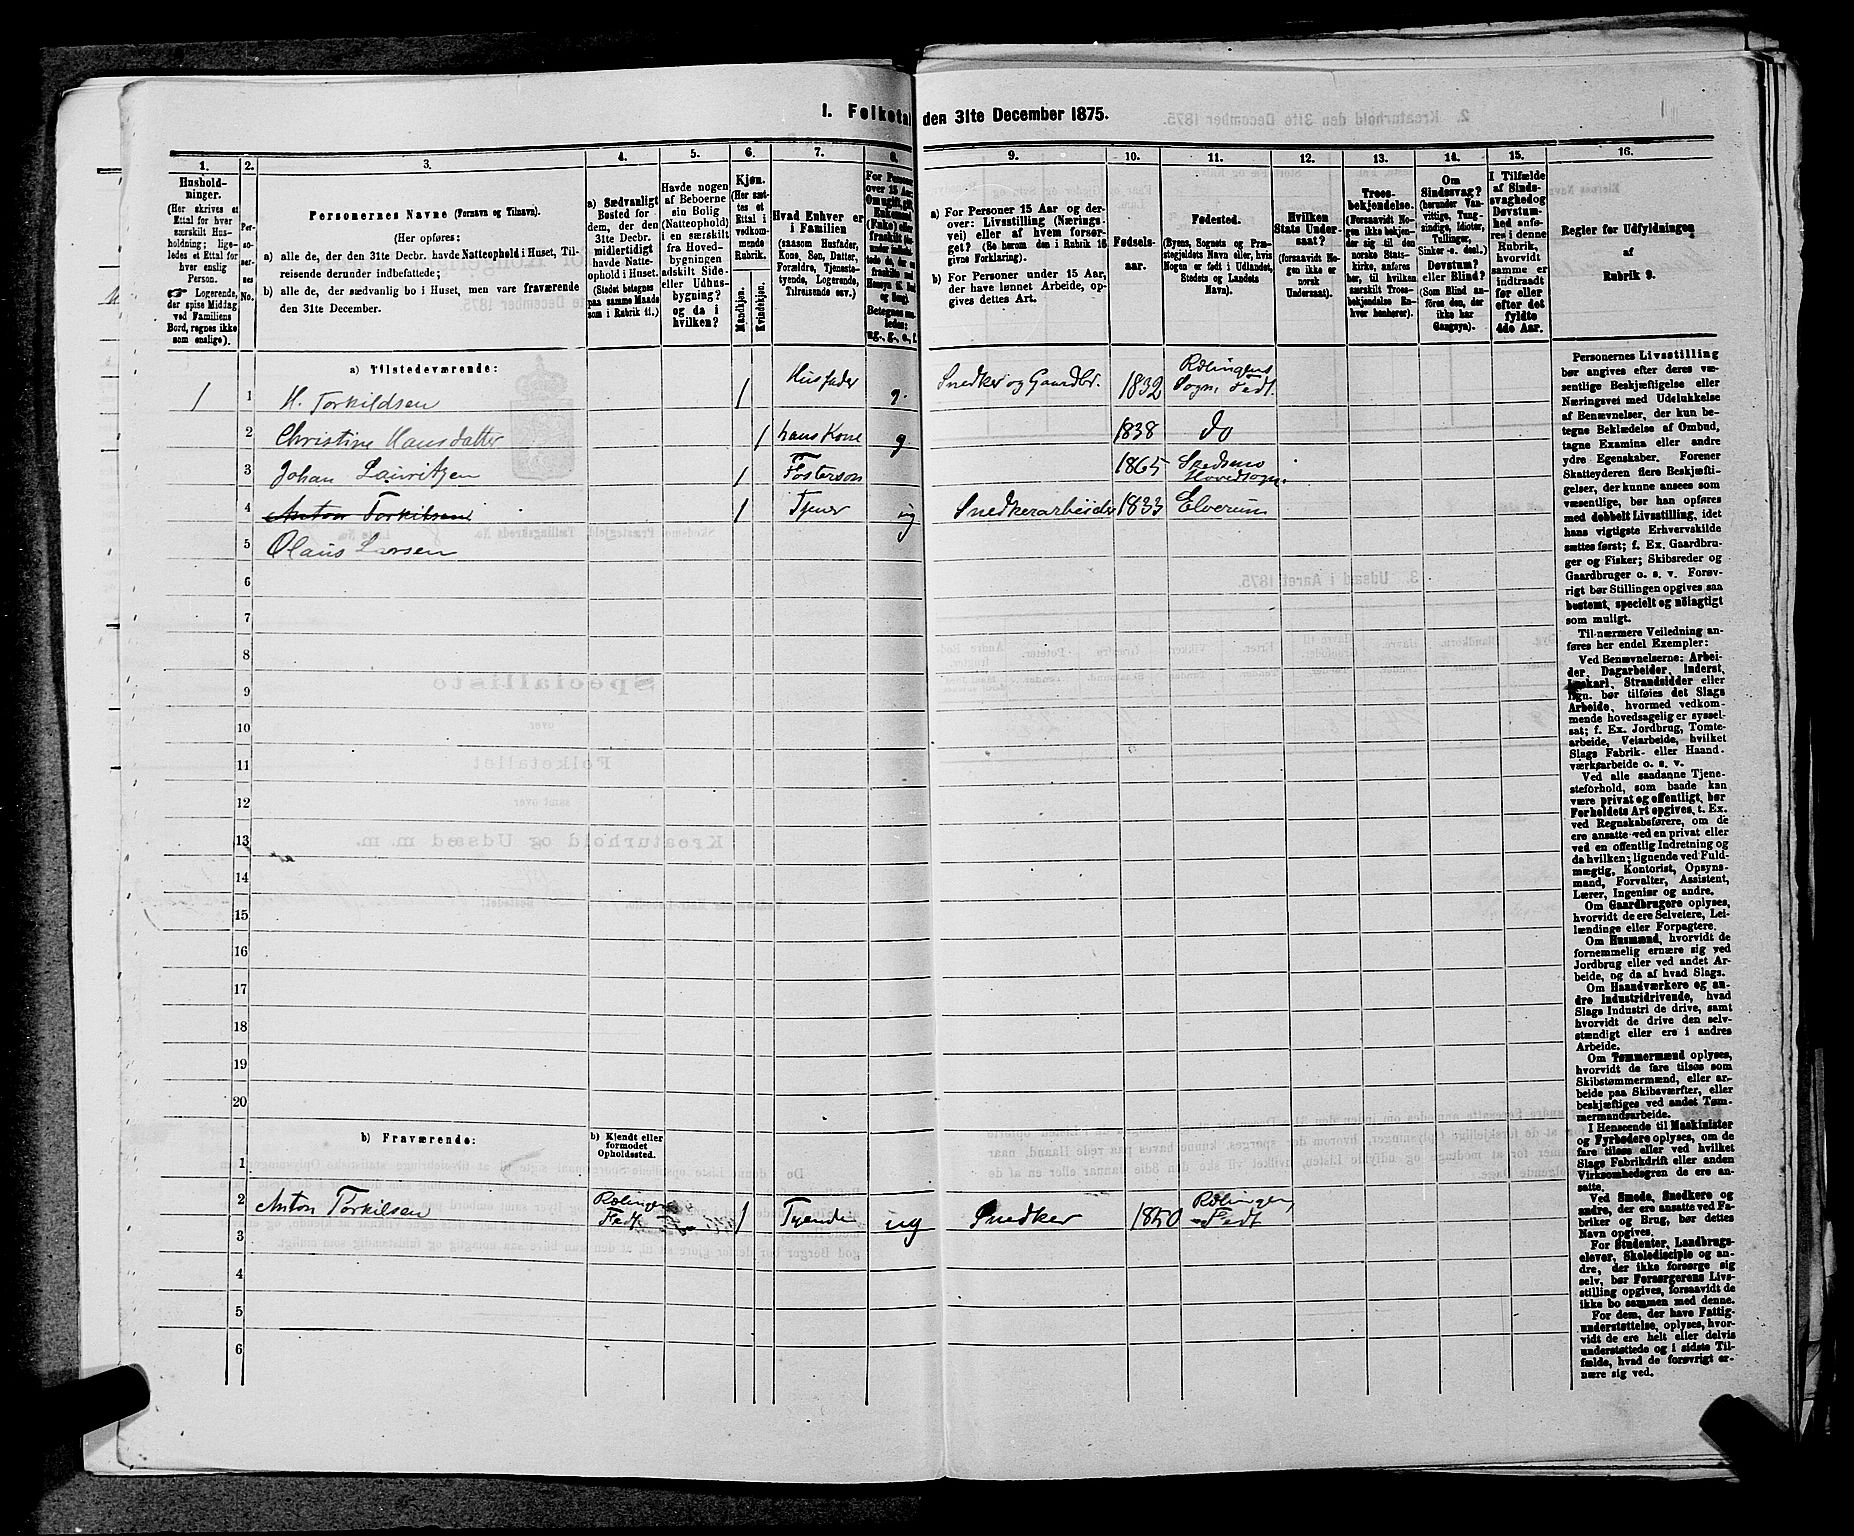 1. Folketal den 31te December 1875.
1. 2. 3. 4. 5. 6. 7. 8. 9. 10. 11. 12. 13. 14. 15. 16.
Hushold-
ninger.
(Her skrives et
Ettal for hver
særskilt Hus-
holdning; lige-
ledes et Ettal for
hver enslig
Person.
☛ Logerende,
der spise Middag
ved Familiens
Bord, regnes ikke
som enslige).
Per-
so-
ner-
nes
No.
Personernes Navne (Fornavn og Tilnavn).
(Her opføres:
a) alle de, der den 31te Decbr. havde Natteophold i Huset, Til-
reisende derunder indbefattede;
b) alle de, der sædvanlig bo i Huset, men vare fraværende
den 31te December.
a) Sædvanligt
Bosted for
dem, der den
31te Decbr.
midlertidigt
havde Natte-
ophold i Huset.
(Stedet betegnes
paa samme Maade
som i Rubrik 11.)
Havde nogen
af Beboerne
sin Bolig
(Natteophold)
i en særskilt
fra Hoved-
bygningen
adskilt Side-
eller Udhus-
bygning?
og da i
hvilken?
Kjøn.
(Her sæt-
tes et
Ettal i
vedkom-
mende
Rubrik.
Mandkjøn.
Kvindekjøn.
Hvad Enhver er
i Familien
(saasom Husfader,
Kone, Søn, Datter,
Forældre, Tjeneste-
tyende, Logerende,
Tilreisende osv.)
For Persone
over 15 Aar
a) For Personer 15 Aar og der-
over: Livsstilling (Nærings-
vei) eller af hvem forsør-
get? (Se herom den i Rubrik 16
givne Forklaring).
b) For Personer under 15 Aar,
der have lønnet Arbeide, op-
gives dettes Art.
Fødsels-
aar.
Fødested.
(Byens, Sognets og Præ-
stegjeldets Navn eller, hvis
Nogen er født i Udlandet,
Stedets og Landets
Navn).
Hvilken
Stats Under-
saat?
(forsaavidt No-
gen ikke er
norsk
Undersaat).
Troes-
bekjendelse.
(Forsaavidt No-
gen ikke bekjen-
der sig til den
norske Stats-
kirke, anføres
her, til hvilken
særskilt Troes-
bekjendelse En-
hver henhører).
Om
Sindssvag?
(herunder Van-
vittige, Tung-
sindige, Idioter,
Tullinger,
Sinker o. desl.)
Døvstum?
eller Blind?
(Som Blind an-
føres den, der
ikke har
Gangsyn).
I Tilfælde
af Sinds-
svaghed og
Døvstum-
hed anfø-
res i denne
Rubrik,
hvorvidt
samme er
indtraadt
før eller
efter det
fyldte
4de Aar.
Regler for Udfyldningen
af
Rubrik 9.
a) Tilstedeværende:
1 1 H. Torkildsen 1 Husfader g. Snedker og Gaardbr. 1832 Rælingens
Sogn, Fedt.
2 Christine Hansdatter 1 hans Kone g 1838 do
3 Johan Lauritzen 1 Fosterson 1865 Skedsmo
Hovedsogn.
4 Anton Torkilsen 1 Tjener ug Snedkerarbeider 1833 Elverum
5 Olaus Larsen
6
7
8
9
10
11
12
13
14
15
16
17
18
19
20
b) Fraværende:
b) Kjendt eller
formodet
Opholdssted.
1
2 Anton Torkilsen Rælingen
Fedt 1 Tyende ug Snedker 1850 Rælingen,
Fedt
3
4
5
6
Personernes Livsstilling
bør angives efter deres væ-
sentlige Beskjæftigelse eller
Næringsvei med Udelukkelse
af Benævnelser, der kun be-
tegne Beklædelse af Ombud,
tagne Examina eller andre
ydre Egenskaber. Forener
Skatteyderen flere Beskjæfti-
gelser, der kunne ansees som
væsentlige, bør han opføres
med dobbelt Livsstilling, idet
hans vigtigste Erhvervskilde
sættes først; f. Ex. Gaardbru-
ger og Fisker; Skibsreder og
Gaardbruger o. s. v. Forøv-
rigt bør Stillingen opgives saa
bestemt, specielt og nøiagtigt
som muligt.
Til nærmere Veiledning an-
føres her endel Exempler:
Ved Benævnelserne: Arbei-
der, Dagarbeider, Inderst,
Huskarl, Strandsidder eller
lign. bør tilføies det Slags
Arbeide, hvormed vedkom-
mende hovedsagelig er syssel-
sat; f. Ex. Jordbrug, Tomte-
arbeide, Veiarbeide, hvilket
Slags Fabrik- eller Haand-
værksarbeide o. s. v.
Ved alle saadanne Tjene-
steforhold, som baade kan
være privat og offentligt, bør
Forholdets Art opgives, t. Ex.
ved Regnskabsførere, om de
ere ansatte ved en privat eller
ved en offentlig Indretning og
da hvilken; lignende ved Fuld-
mægtig, Kontorist, Opsyns-
mand, Forvalter, Assistent,
Lærer, Ingeniør og andre.
Om Gaardbrugere oplyses,
hvorvidt de ere Selveiere, Lei-
lændinge eller Forpagtere.
Om Husmænd, hvorvidt de
fornemmelig ernære sig ved
Jordbrug eller ved andet Ar-
beide, og da af hvad Slags.
Om Haandværkere og an-
dre Industridrivende, hvad
Slags Industri de drive, samt
hvorvidt de drive den selv-
stændigt eller ere i andres
Arbeide.
Om Tømmermænd oplyses,
hvorvidt de fare tilsøs som
Skibstømmermænd, eller ar-
beide paa Skibsværfter, eller
beskjæftiges ved andet Tøm-
mermandsarbeide.
I Henseende til Maskinister
og Fyrbødere oplyses, om de
fare tilsøs eller ved hvilket
Slags Fabrikdrift eller anden
Virksomhedsgren de ere an-
satte.
Ved Smede, Snedkere og
andre, der ere ansatte ved Fa-
briker og Brug, bør dettes
Navn opgives.
For Studenter, Landbrugs-
elever, Skoledisciple og an-
dre, der ikke forsørge sig
selv, bør Forsørgerens Livs-
stilling opgives, forsaavidt de
ikke bo sammen med denne.
For dem, der have Fattig-
understøttelse, oplyses, hvor-
vidt de ere helt eller delvis
understøttede og i sidste Til-
fælde, hvad de forøvrigt er-
nære sig ved.